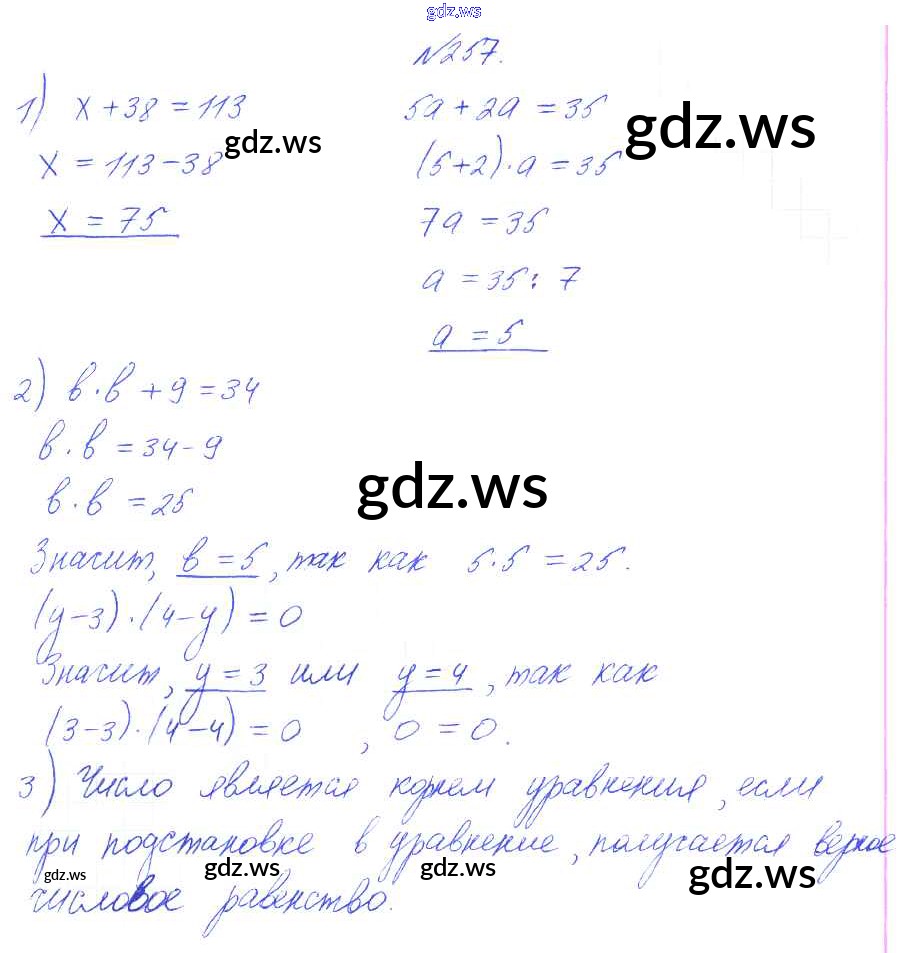 gdz.ws
№257.
1) x + 38 = 113
x = 113 - 38
x = 75
5a + 2a = 35
(5+2)·a = 35
7a = 35
a = 35 : 7
a = 5
gdz.ws
gdz.ws
2) в·в + 9 = 34
в·в = 34 - 9
в·в = 25
gdz.ws
Значит, в = 5, так как 5·5 = 25.
(y-3)·(4-y) = 0
Значит, y = 3 или y = 4, так как
(3-3)·(4-4) = 0, 0 = 0.
3) Число является корнем уравнения, если
при подстановке в уравнение, получается верное
числовое равенство.
gdz.ws
gdz.ws
gdz.ws
gdz.ws